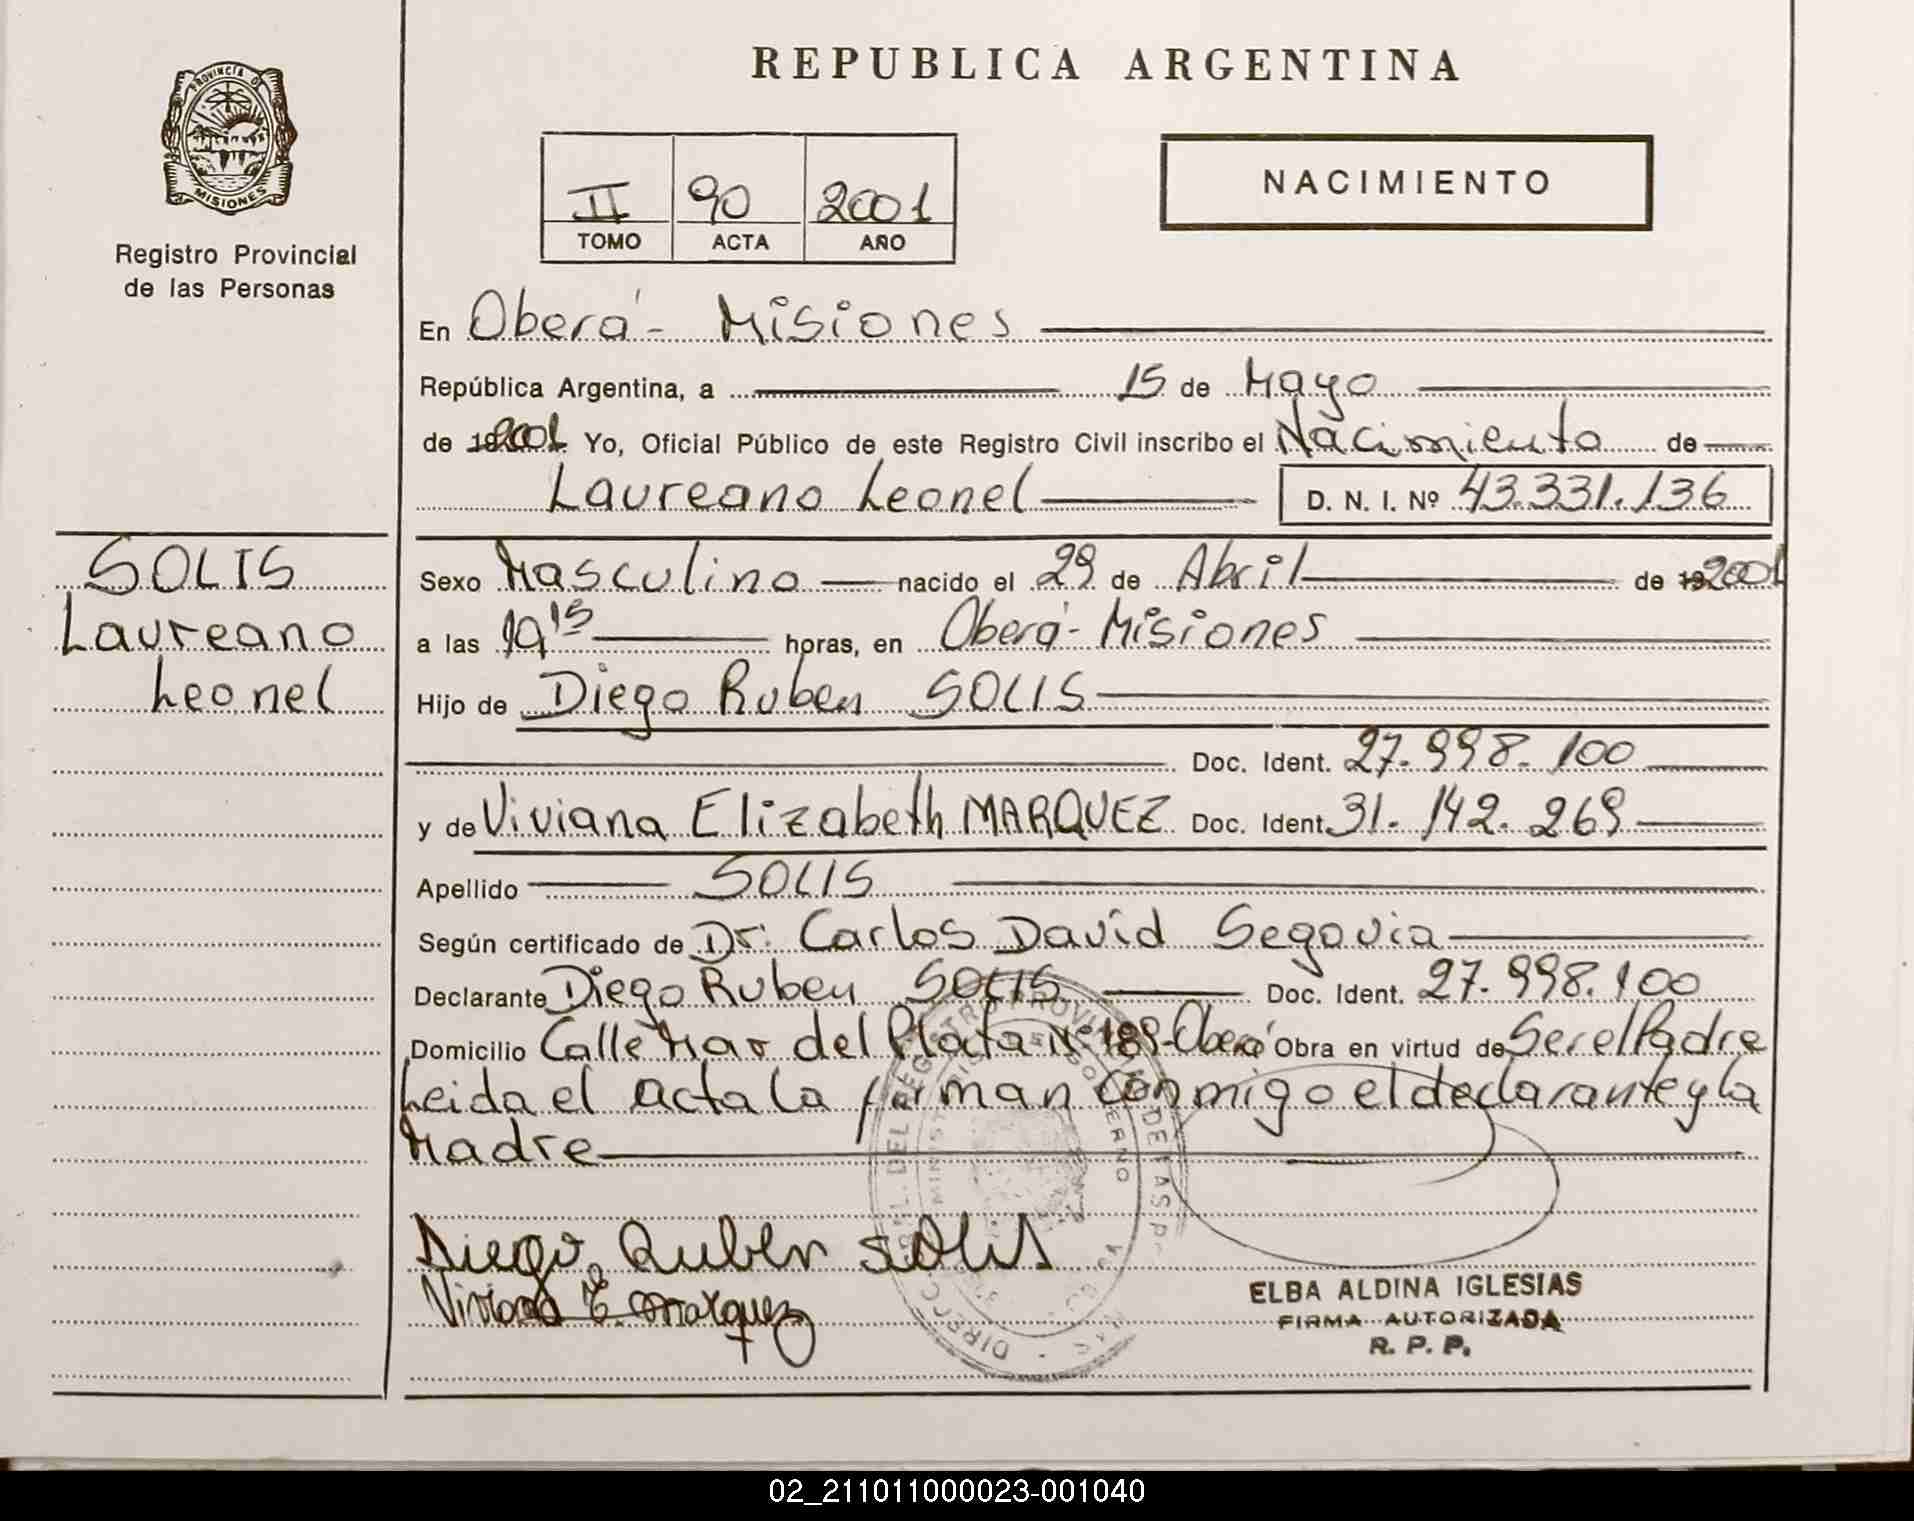 REPUBLICA ARGENTINA
PROVINCIA DE
MISIONES
Registro Provincial
de las Personas
II 90 2001
TOMO ACTA AÑO
NACIMIENTO
En Oberá - Misiones
República Argentina, a 15 de Mayo
de 19 2001 Yo, Oficial Público de este Registro Civil inscribo el Nacimiento de
Laureano Leonel D. N. I. Nº 43.331.136
SOLIS
Laureano
Leonel
Sexo Masculino nacido el 29 de Abril de 19 2001
a las 19 15 horas, en Oberá - Misiones
Hijo de Diego Ruben SOLIS
Doc. Ident. 27.998.100
y de Viviana Elizabeth MARQUEZ Doc. Ident. 31.142.269
Apellido SOLIS
Según certificado de Dr. Carlos David Segovia
Declarante Diego Ruben SOLIS Doc. Ident. 27.998.100
Domicilio Calle Mar del Plata Nº 189 - Oberá Obra en virtud de Ser el Padre
Leida el acta la firman conmigo el declarante y la
Madre
Diego Ruben Solis
Viviana E. Marquez
ELBA ALDINA IGLESIAS
FIRMA AUTORIZADA
R. P. P.
02_211011000023-001040